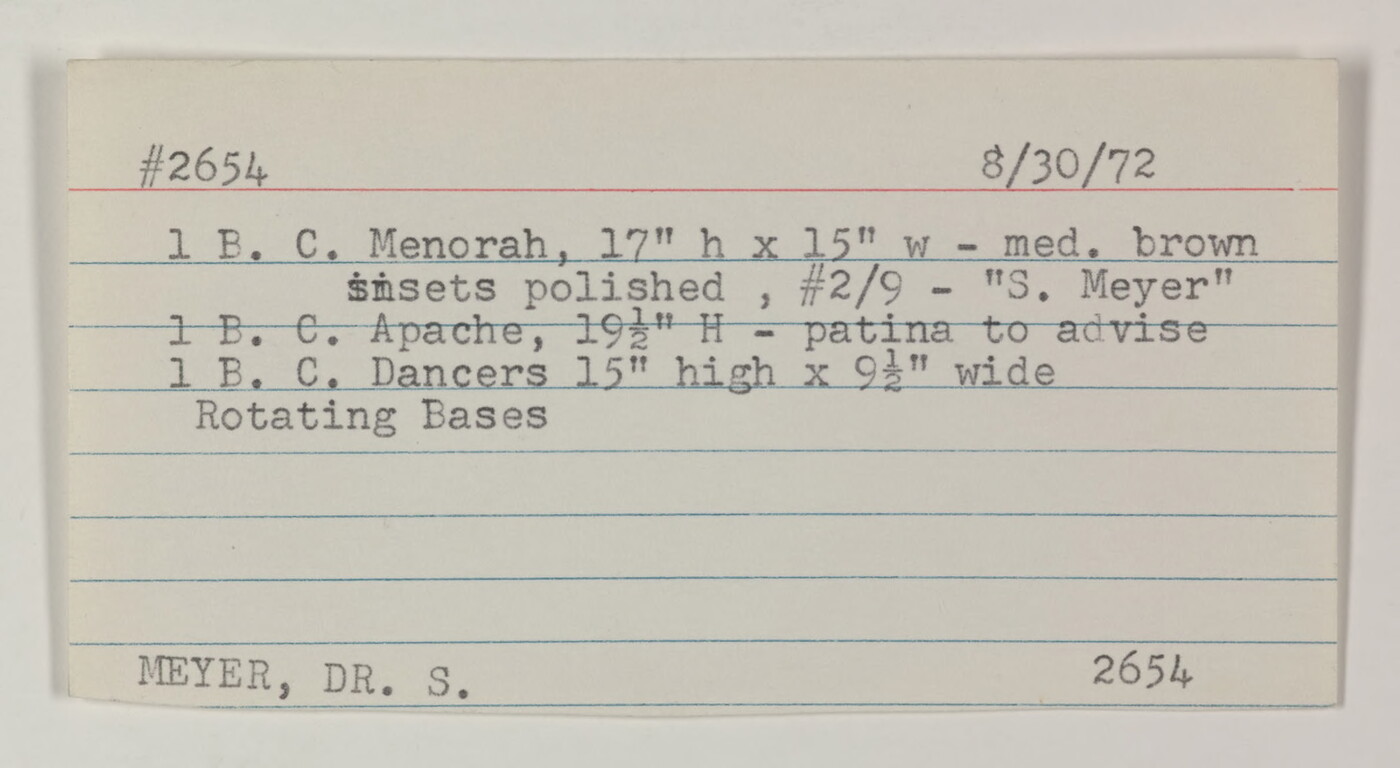 #2654 8/30/72
1 B. C. Menorah, 17" h x 15" w - med. brown
insets polished , #2/9 - "S. Meyer"
1 B. C. Apache, 19½" H - patina to advise
1 B. C. Dancers 15" high x 9½" wide
Rotating Bases
MEYER, DR. S. 2654